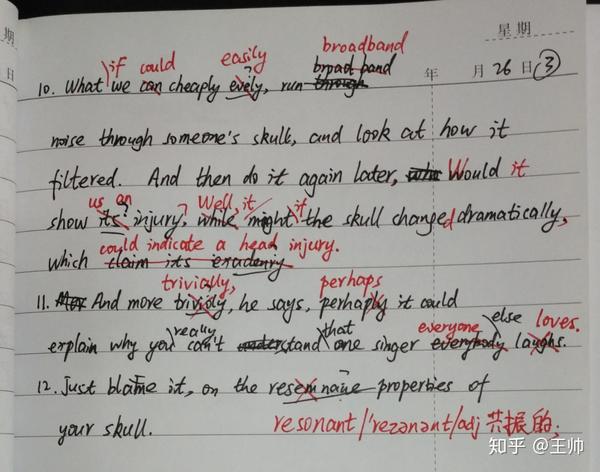 星期
期
日
年 月 26 日 ③
if could easily broadband
10. What we can cheaply evely, run through broad band
noise through someone's skull, and look at how it
filtered. And then do it again later, Would it
us an Well, it if
show its? injury, while might the skull changed dramatically,
could indicate a head injury.
which claim its
trivially, perhaps
11. And more trividy, he says, perhaply it could
really that everyone else loves.
explain why you can't understand one singer everybody laughs.
12. Just blame it, on the resemnane properties of
your skull. resonant /'rezənənt/adj 共振的;
知乎 @王帅